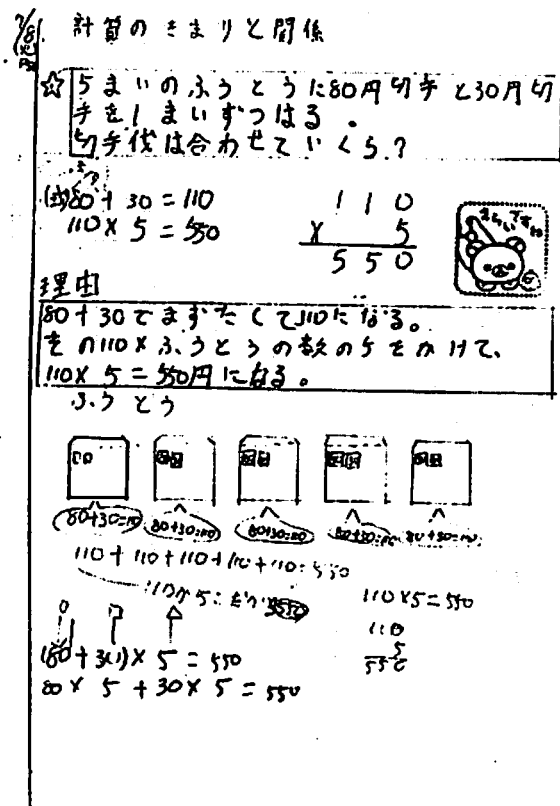 7/8
計算のきまりと関係
☆5まいのふうとうに80円切手と30円切
手を1まいずつはる。
切手代は合わせていくら?
(式)80+30=110
110×5=550
110
× 5
550
理由
80+30でまずたして110になる。
その110×ふうとうの数の5をかけて、
110×5=550円になる。
ふうとう
80+30=110 80+30=110 80+30=110 80+30=110 80+30=110
110+110+110+110+110=550
110が5こだから550
110×5=550
110
5
550
○ □ △
(80+30)×5=550
80×5+30×5=550